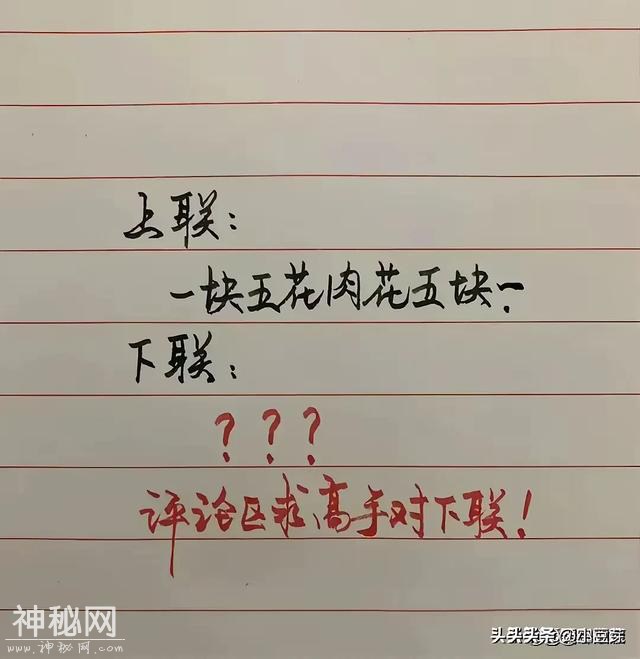 上联：
一块五花肉花五块一.
下联：
？？？
评论区求高手对下联！
神秘网
www.小神秘网.com
头头头条